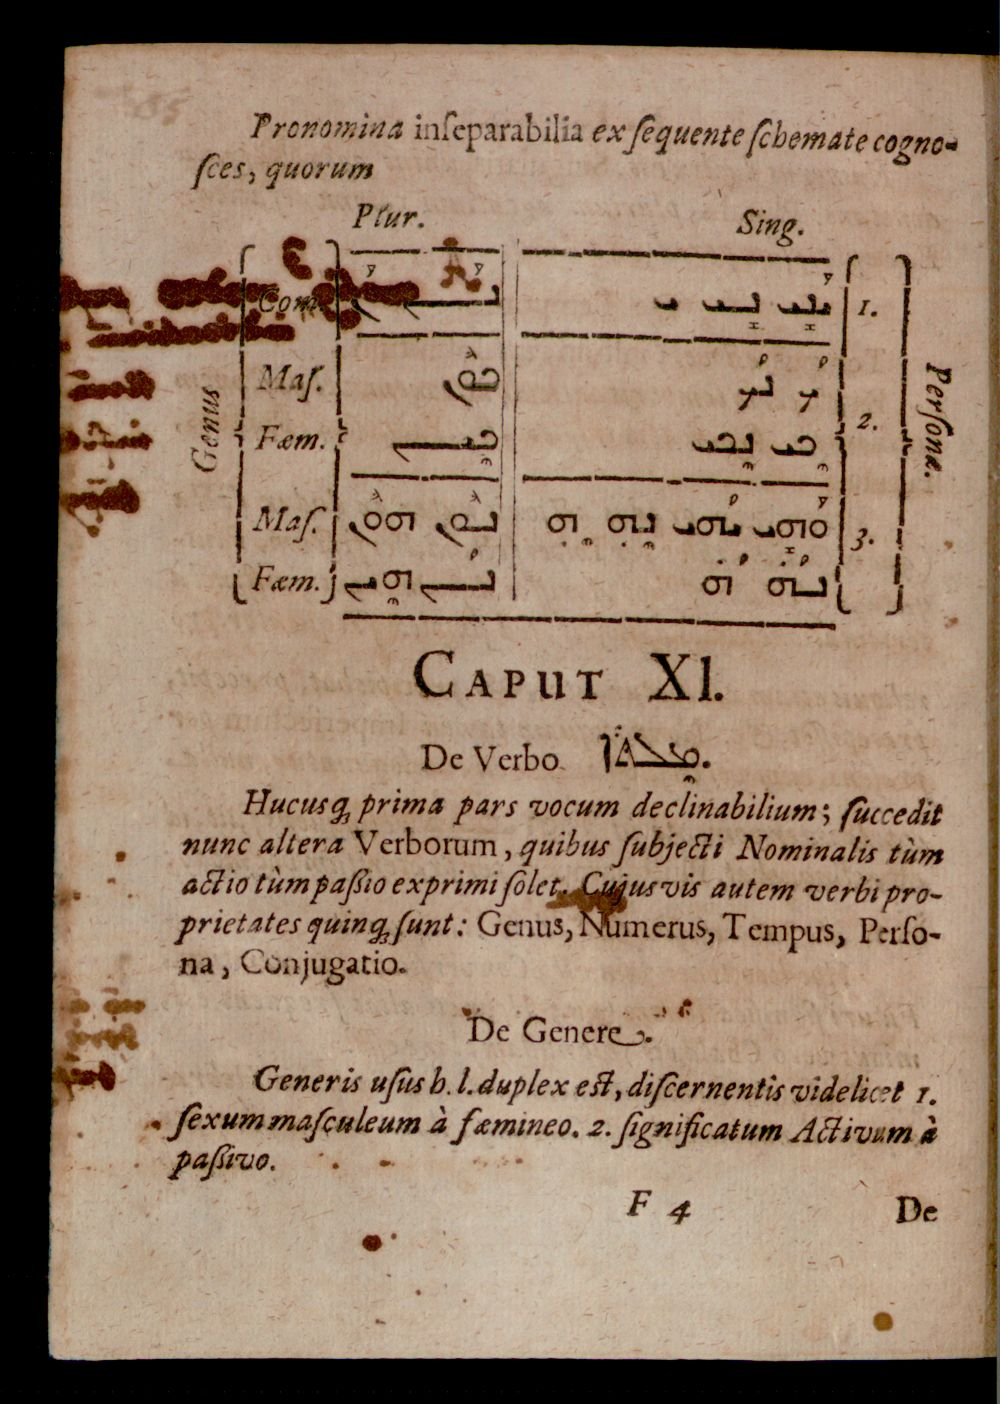 Pronomina inſeparabilia ex ſequente ſchemate cogno-
ſces, quorum
Plur. Sing.
Com. 1.
Maſ.
Fæm. 2.
Maſ. 3.
Fæm.
Genus
Perſonæ.
CAPUT XI.
De Verbo
Hucusq; prima pars vocum declinabilium; ſuccedit
nunc altera Verborum, quibus ſubjecti Nominalis tùm
actio tùm paßio exprimi ſolet. Cujusvis autem verbi pro-
prietates quinq; ſunt: Genus, Numerus, Tempus, Perſo-
na, Conjugatio.
De Genere.
Generis uſus h. l. duplex eſt, diſcernentis videlicet 1.
ſexum maſculeum à fæmineo. 2. ſignificatum Activum à
paßivo.
F 4 De